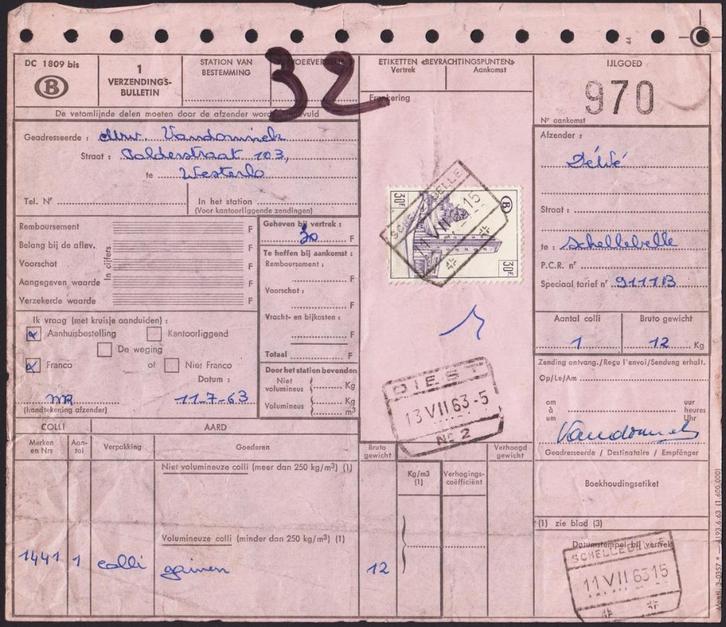 DC 1809 bis
B
1
VERZENDINGS-
BULLETIN
STATION VAN
BESTEMMING
32
ETIKETTEN «BEVRACHTINGSPUNTEN»
Vertrek Aankomst
IJLGOED
970
N° aankomst
De vetomlijnde delen moeten door de afzender worden
Frankering
Geadresseerde : Mw.
Straat : Polderstraat 103,
te Westerlo
Tel. N° In het station
(Voor kantoorliggende zendingen)
Afzender :
Straat :
te : Schellebelle
P.C.R. n°
Speciaal tarief n° 9111B
Aantal colli Bruto gewicht
1 12 Kg
Remboursement F
Belang bij de aflev. F
Voorschot F
Aangegeven waarde F
Verzekerde waarde F
In cijfers
Geheven bij vertrek :
30 F
Te heffen bij aankomst :
Remboursement :
F
Voorschot :
F
Vracht- en bijkosten :
F
Totaal F
Ik vraag (met kruisje aanduiden) :
x Aanhuisbestelling Kantoorliggend
De weging
x Franco of Niet Franco
Datum :
11-7-63
(handtekening afzender)
Door het station bevonden
Niet volumineus Kg
Volumineus Kg
m³
30F
B
30F
11 VII 15
DIEST
13 VII 63-5
N° 2
Zending ontvang./Reçu l'envoi/Sendung erhalt.
Op/Le/Am
om
à
um
uur
heures
Uhr
Geadresseerde / Destinataire / Empfänger
COLLI AARD
Merken en Nrs Aan-tal Verpakking Goederen Bruto gewicht Kg/m3 (1) Verhogings-coëfficient Verhoogd gewicht
Niet volumineuze colli (meer dan 250 kg/m³) (1)
Volumineuze colli (minder dan 250 kg/m³) (1)
1441 1 colli gainen 12
Boekhoudingsetiket
(1) zie blad (3)
Datumstempel bij vertrek
11 VII 63 15